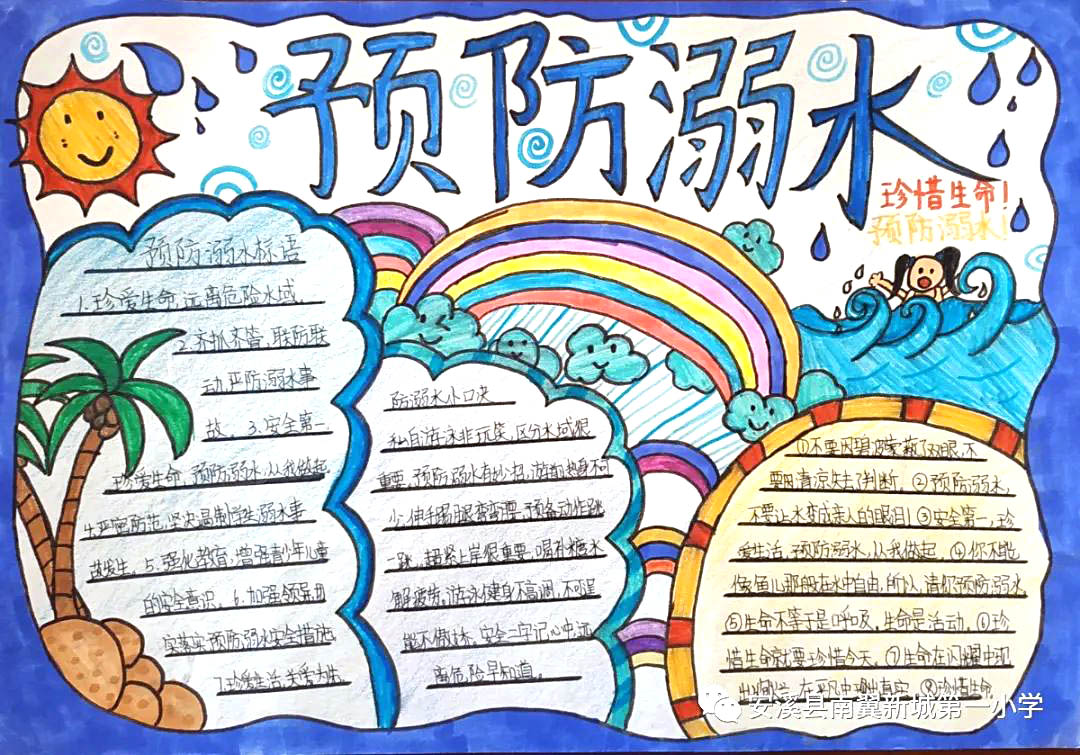 预防溺水
珍惜生命!
预防溺水!
预防溺水标语
1.珍爱生命,远离危险水域.
2.齐抓齐管,联防联
动,严防溺水事
故. 3.安全第一,
珍爱生命,预防溺水,从我做起
4.严密防范,坚决遏制学生溺水事
故发生. 5.强化教育,增强青少年儿童
的安全意识. 6.加强领导,切
实落实预防溺水安全措施
7.珍爱生活,关爱为生.
防溺水小口决
私自游泳非玩笑,区分水域很
重要,预防溺水有妙招,游前热身不可
少,伸手踢腿弯弯腰,预备动作跳
一跳,超紧上岸很重要,喝补糖水
解疲劳,游泳健身不高调,不可逞
能不傲娇,安全二字记心中,远
离危险早知道。
①不要因碧波蒙蔽双眼,不
要因清凉失去判断。②预防溺水,
不要让水变成亲人的眼泪!③安全第一,珍
爱生活,预防溺水,从我做起。④你不能
像鱼儿那般在水中自由,所以,请你预防溺水
⑤生命不等于是呼吸,生命是活动。⑥珍
惜生命就要珍惜今天。⑦生命在闪耀中现
出绚烂,在平凡中现出真实。⑧珍惜生命
安溪县南翼新城第一小学